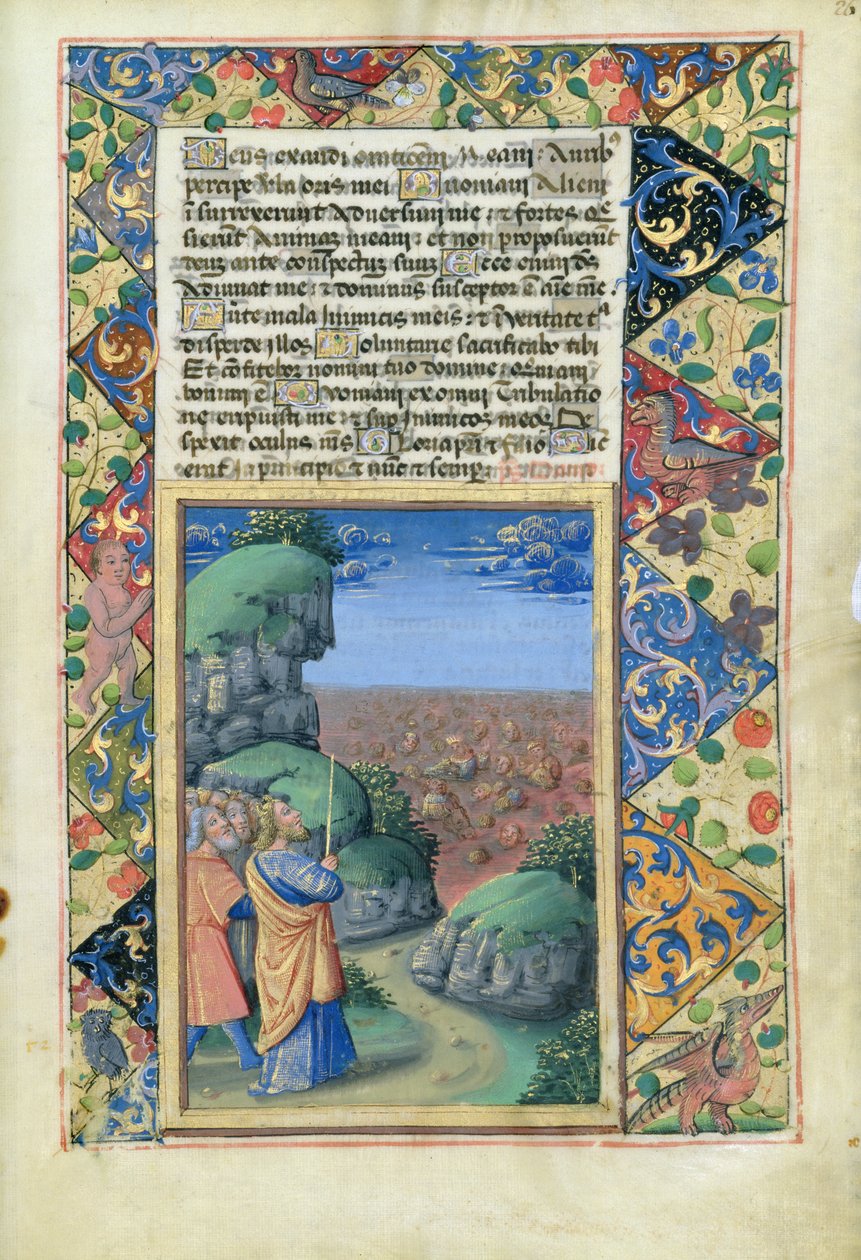 26
Deus exaudi orationem Meam : Aurib9
percipe v̄ba oris mei Quoniam Alieni
ī surrexerunt Adversum me : & fortes q̄e
sierunt Animaʒ meam : et non proposuerunt
deum ante conspectuʒ suum Ecce enim ds
Adiuuat me : & dominus susceptor ē aīe mee .
Auerte mala Inimicis meis : & ī veritate tᵃ
disperde illos Voluntarie sacrificabo tibi
Et cōfitebor nomini tuo domine : Quoniam
bonum ē Quoniam ex omni Tribulatio
ne eripuisti me : & sup Inimicos meos De
spexit oculus m̄s Gloria pri & filio Sic
erat In principio & nūc & semper :